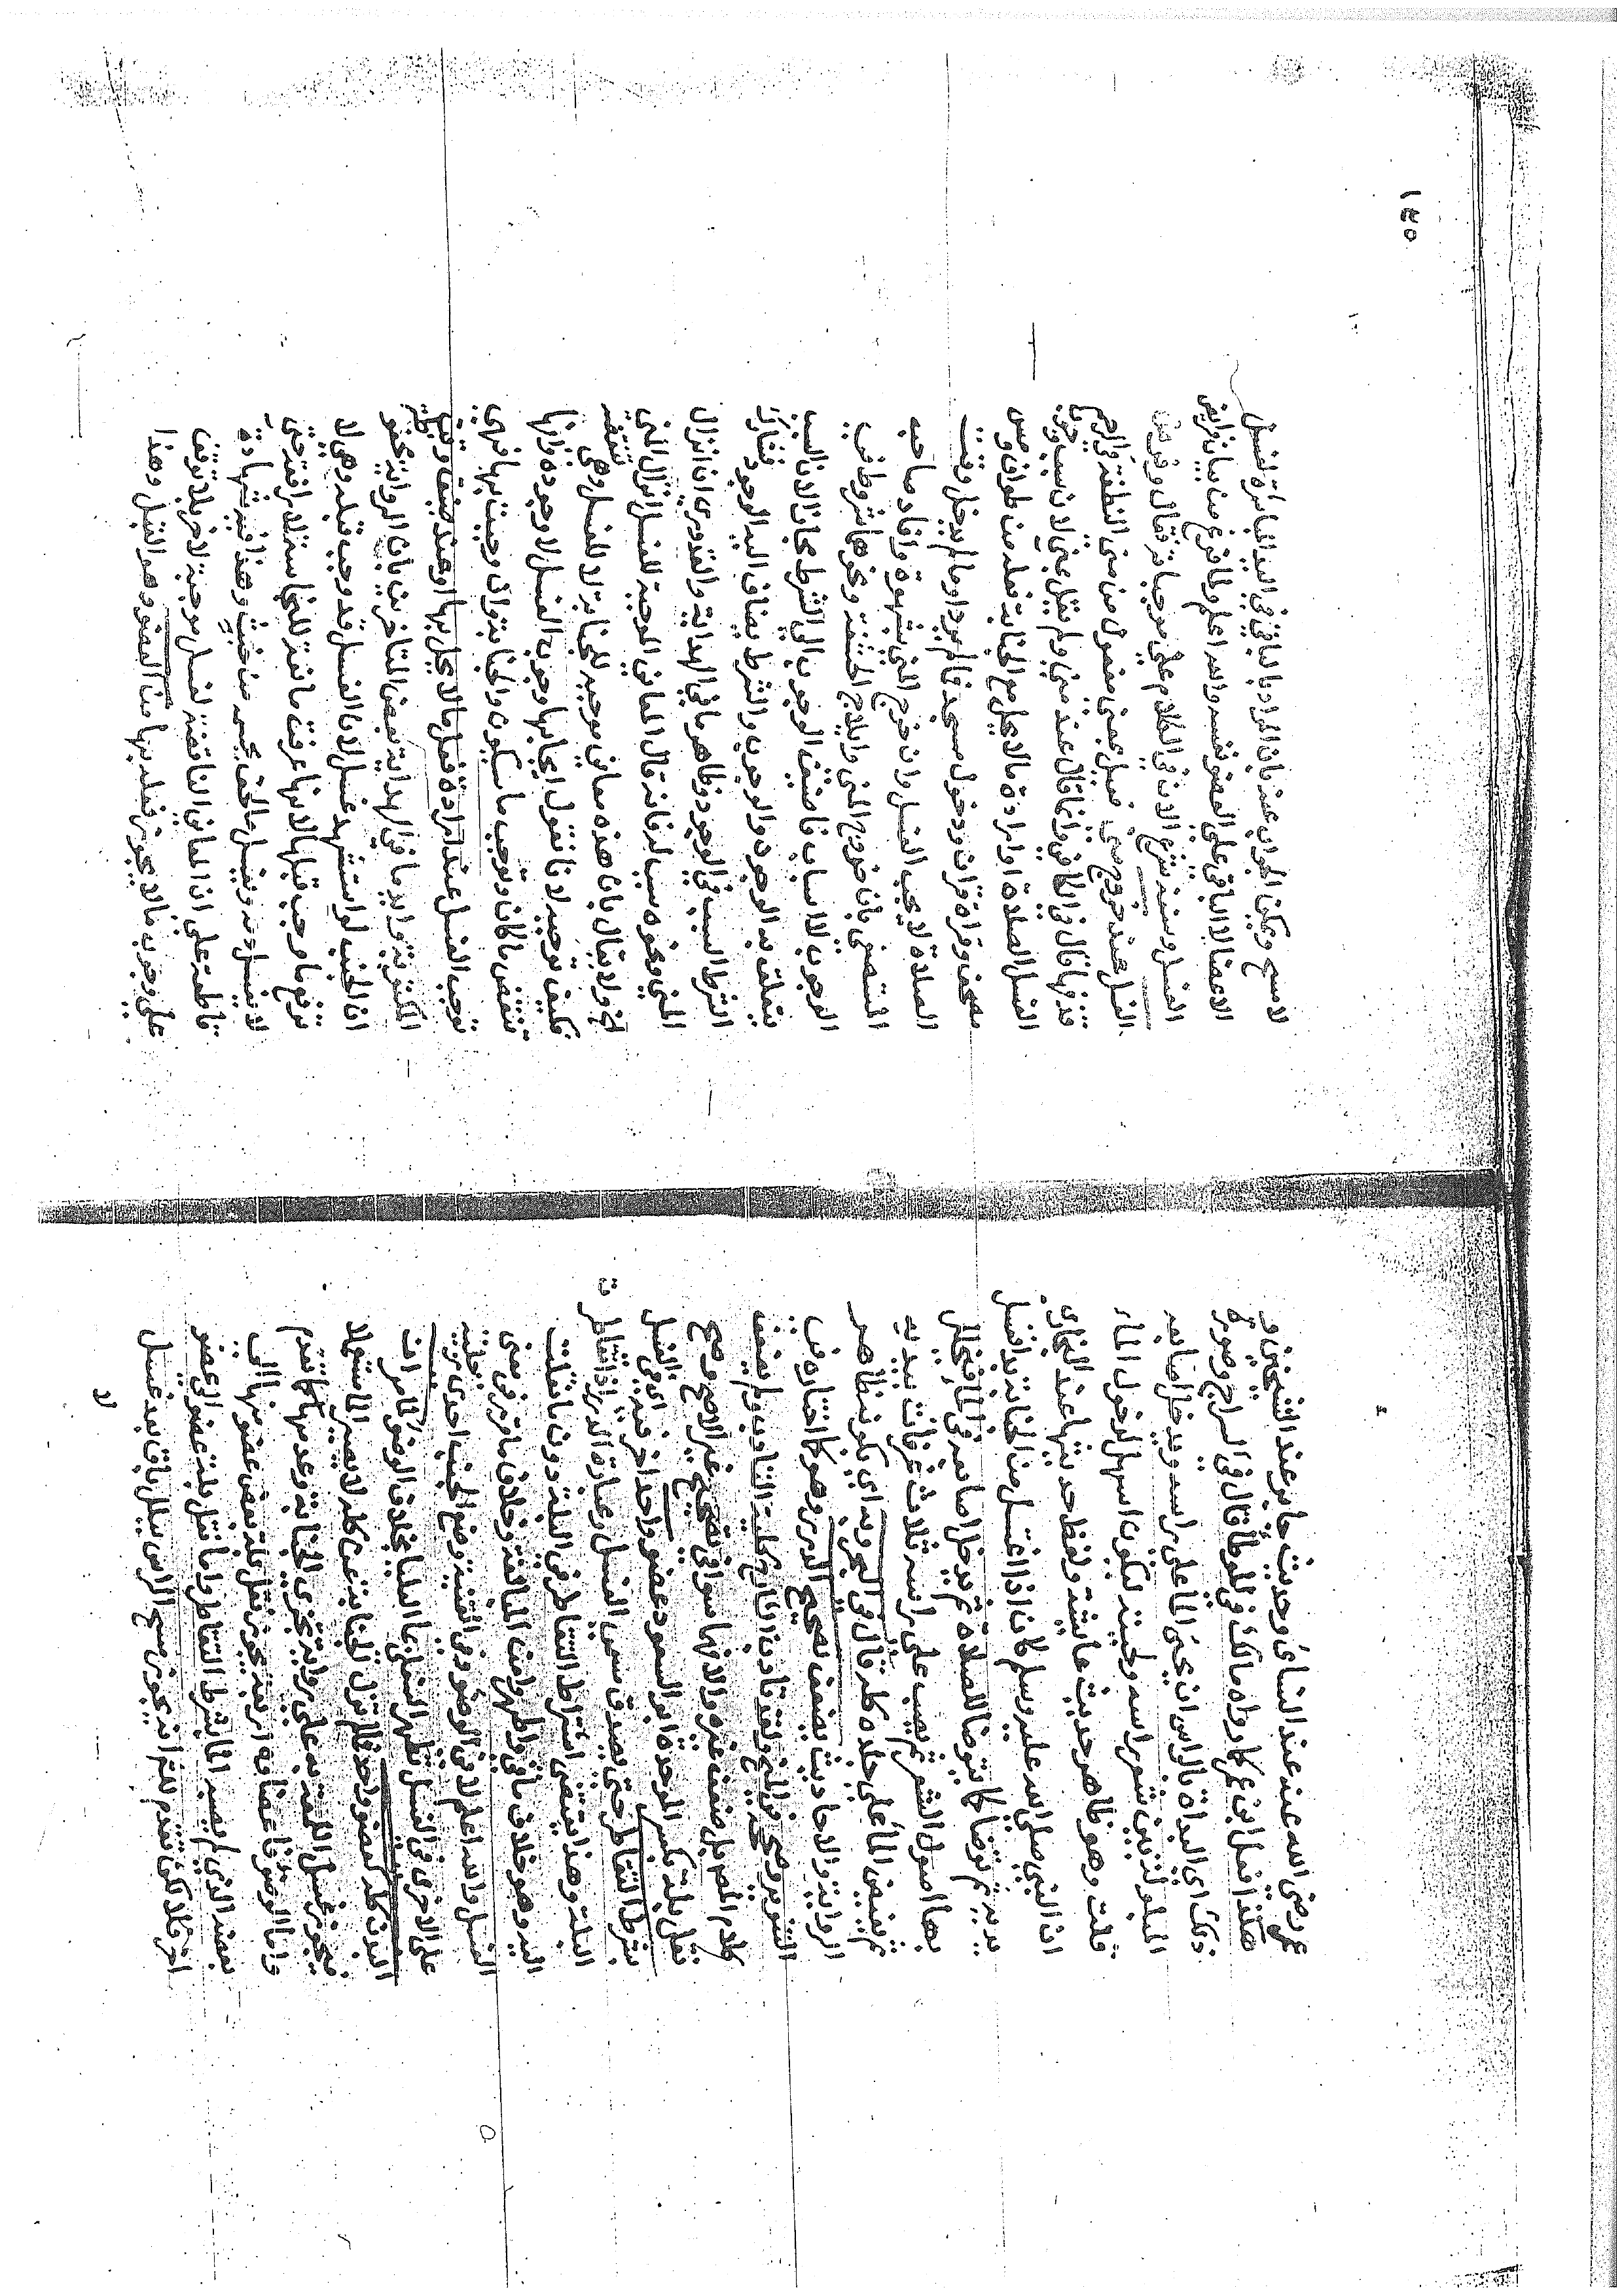 ١٤٥
عمر رضي الله عنه عند النسائي وحديث جابر عند الشيخين و
هكذا فعل ابن عمر كما رواه مالك في الموطأ قال في السراج وصورة
ذلك اي البداة بالراس ان يحثي الماء على راسه ويدخل اصابعه
المبلولة بين شعر راسه ولحيته ليكون اسهل لدخول الماء
قلت وهو ظاهر حديث عايشة ولفظ احد يثها عند البخاري
ان النبي صلى الله عليه وسلم كان اذا اغتسل من الجنابة بدا فغسل
يديه ثم توضا كما يتوضا للصلاة ثم يدخل اصابعه في الماء فيخلل
بها اصول الشعر ثم يصب على راسه ثلاث غرفات بيديه
ثم يفيض الماء على جلده كله قال في البحر وبه اي بكونه ظاهر
الرواية والاحاديث يضعف تصحيح الدرر وهو كما اختاره في
التنوير وصححه في المنح ولقد تادب الشارح ولم يضعف
كلام المص بل ضعف غيره والا فهما سوا في تصحيح غير الاصح وصح
نقل بلة بكسر الموحدة ابو السعود عضو واحد الى اخر منه اي في الغسل
بشرط التقاطر حتى يصدق مسمى الغسل وعبارة الدرر اذا تقاطرت
البلة وهذا يقتضي اشتراط التقاطر في البلة دون ما نقلت
اليه وهو خلاف وخلاف ما مر في معنى
الغسل والله اعلم لا في الوضوء وفي القنية وضع الجنب احدى رجليه
على الاخرى في الغسل تطهر السفلى بما العليا بخلاف الوضوء لما مر ان
البدن كله كعضو واحد فلم تزل الجنابة عن كله لا يصير الماء مستعملا
فيجوز غسل اللمعة به على رواية تجزي الجنابة وعدمها كما تقدم
واما الوضوء فاعضاؤه اربعة يجوز نقل بلة بعض عضو منها الى
بعضه الذي لم يصبه الماء بشرط التقاطر واما نقل بلة عضو الى عضو
اخر فلا لكن تقدم لكم انه يجوز مسح الراس ببلل باق بعد غسل
لا
لا مسح ويمكن الجواب عنه بان المراد بالباقي في اليد المباشرة لغسل
الاعضا لا الباقي على العضو نفسه والله اعلم ولما فرغ من بيان فرايض
الغسل وسننه شرع الان في الكلام على موجباته فقال وفرض
الغسل عند خروج مني فعيل بمعنى مفعول من منى النطفة في الرحم
قذفها قال في الكافي وانما قال عند مني ولم يقل بمني لانه سبب
الغسل الصلاة او ارادة ما لا يحل مع الجنابة فعله من طواف ومس
مصحف وقراة قران ودخول مسجد فما لم يوجد او ما لم يدخل وقت
الصلاة لا يجب الغسل وان خرج المني بشهوة وافاد صاحب
المستصفى بان خروج المني وايلاج الحشفة ونحوها شروط في
الوجوب لا اسباب فاضيف الوجوب الى الشرط مجازا لان السبب
يتعلق به الوجود والوجوب والشرط يضاف اليه الوجود فشارك
الشرط السبب في الوجود وظاهر ما في الهداية والقدوري ان انزال
المني ونحوه سبب له فانه قال المعاني الموجبة للغسل انزال المني
الخ ولا يقال بان هذه معان موجبة للجنابة لا للغسل وهي تنقضه
فكيف توجبه لانا نقول ايجابها وجوب الغسل لا وجوده وانها
تنقض ما كان وتوجب ما سيكون والجنابة وان وجبت بها فهي
توجب الغسل عند ارادة فعل ما لا يحل بها او عند ضيق وقت
المكتوبة وايد ما في الهداية بعض المتاخرين بان الرواية محفوظة
ان الجنب لو استشهد غسل لان الغسل قد وجب قبله وهي لا
ترفع ما وجب قبلها لانها عرفت مانعة للنجاسة لا رافعة حتى
لا يغسل دمه ويغسل ما لحقه بجسده من خبث وهذا فيه شهادة
قاطعة على ان المعاني الناقضة لغسل موجبة لاخر بلا توقف
على وجوب ما لا يجوز فعله بها من العضو وهو القبل وهذا